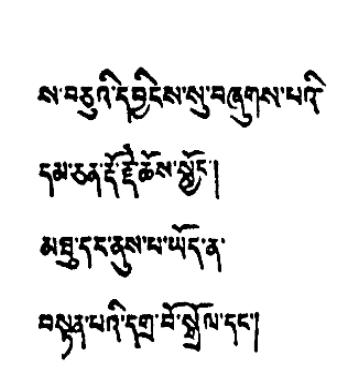 ས་བཅུའི་དབྱིངས་སུ་བཞུགས་པའི་
དམ་ཅན་རྡོ་རྗེ་ཆོས་སྐྱོང་།
མཐུ་དང་ནུས་པ་ཡོད་ན་
བསྟན་པའི་དགྲ་བོ་སྒྲོལ་དང་།